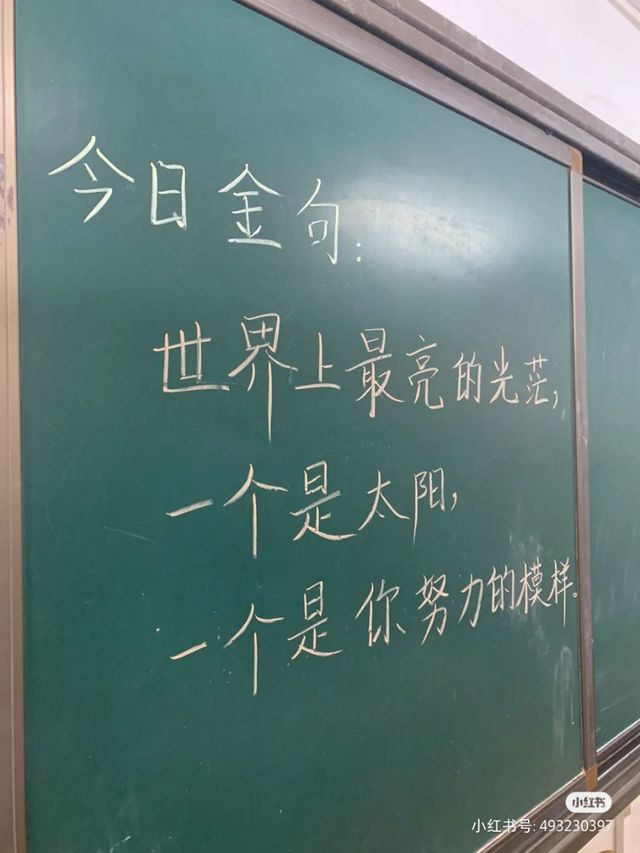 今日金句:
世界上最亮的光茫,
一个是太阳,
一个是你努力的模样。
小红书
小红书号: 493230397